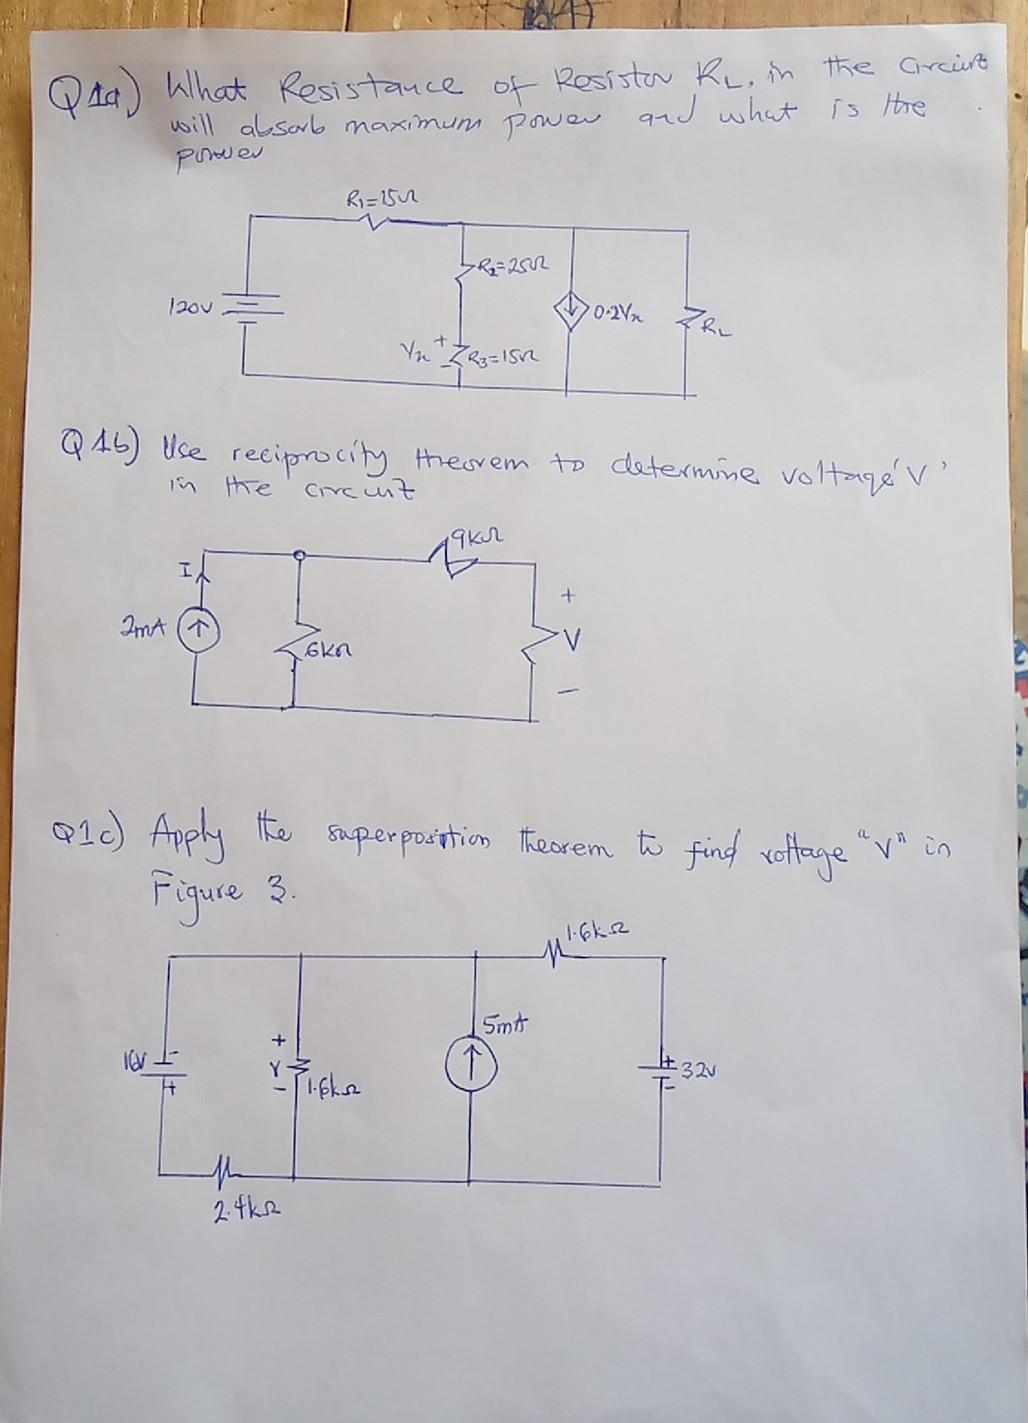 Q1a) What Resistance of Resistor RL, in the circuit
will absorb maximum power and what is the
power
R1=15Ω
R2=25Ω
120V
0.2Vx
RL
Vx + R3=15Ω
-
Q1b) Use reciprocity theorem to determine voltage 'V'
in the circuit
9kΩ
I
+
2mA
6kΩ
V
-
Q1c) Apply the superposition theorem to find voltage "V" in
Figure 3.
1.6kΩ
5mA
16V - +
+ V - 1.6kΩ
+ - 32V
2.4kΩ